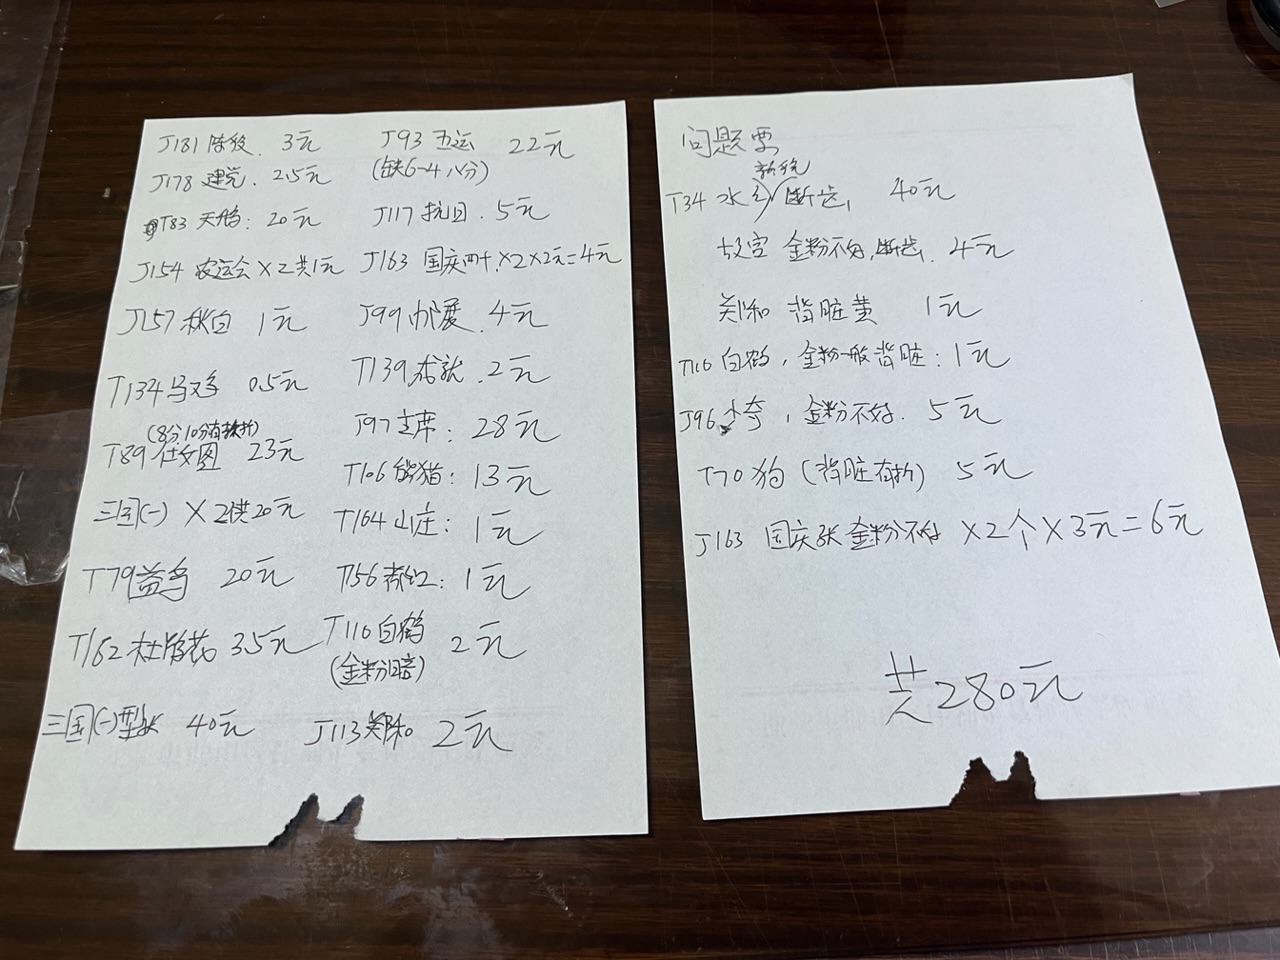 J181 陈毅. 3元
J178 建党. 2.5元
T83 天鹅: 20元
J154 农运会×2共1元
J157 秋白 1元
T134 马鸡 0.5元
(8分,10分有折)
T89 仕女图 23元
三国(一) ×2共20元
T79 益鸟 20元
T162 杜鹃花 3.5元
三国(一)型张 40元
J93 五运 22元
(缺6-4 八分)
J117 抗日. 5元
J163 国庆四十.×2×2元=4元
J99 邮展. 4元
T139 成就. 2元
J97 主席: 28元
T106 熊猫: 13元
T164 山庄: 1元
T56 1元
T110 白鹤 2元
(金粉暗)
J113 郑和 2元
问题票
T34 水乡 断齿, 40元
故宫 金粉不好,断齿. 4元
郑和 背脏黄 1元
T110 白鹤, 金粉一般背脏: 1元
J96 , 金粉不好. 5元
T70 狗 (背脏有折) 5元
J163 国庆张 金粉不好 ×2个×3元=6元
共280元